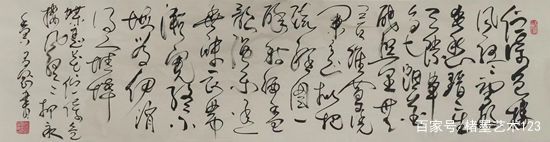 伫倚危楼
风细细望极
春愁黯黯生
天际草
色烟光残
照里無
言谁会凭
阑意拟把
疏狂图一
醉对酒当
歌强乐还
無味衣带
渐宽终不
悔为伊消
得人憔悴
蝶恋花伫倚危
楼风细细柳永
百家号/楮墨艺术123